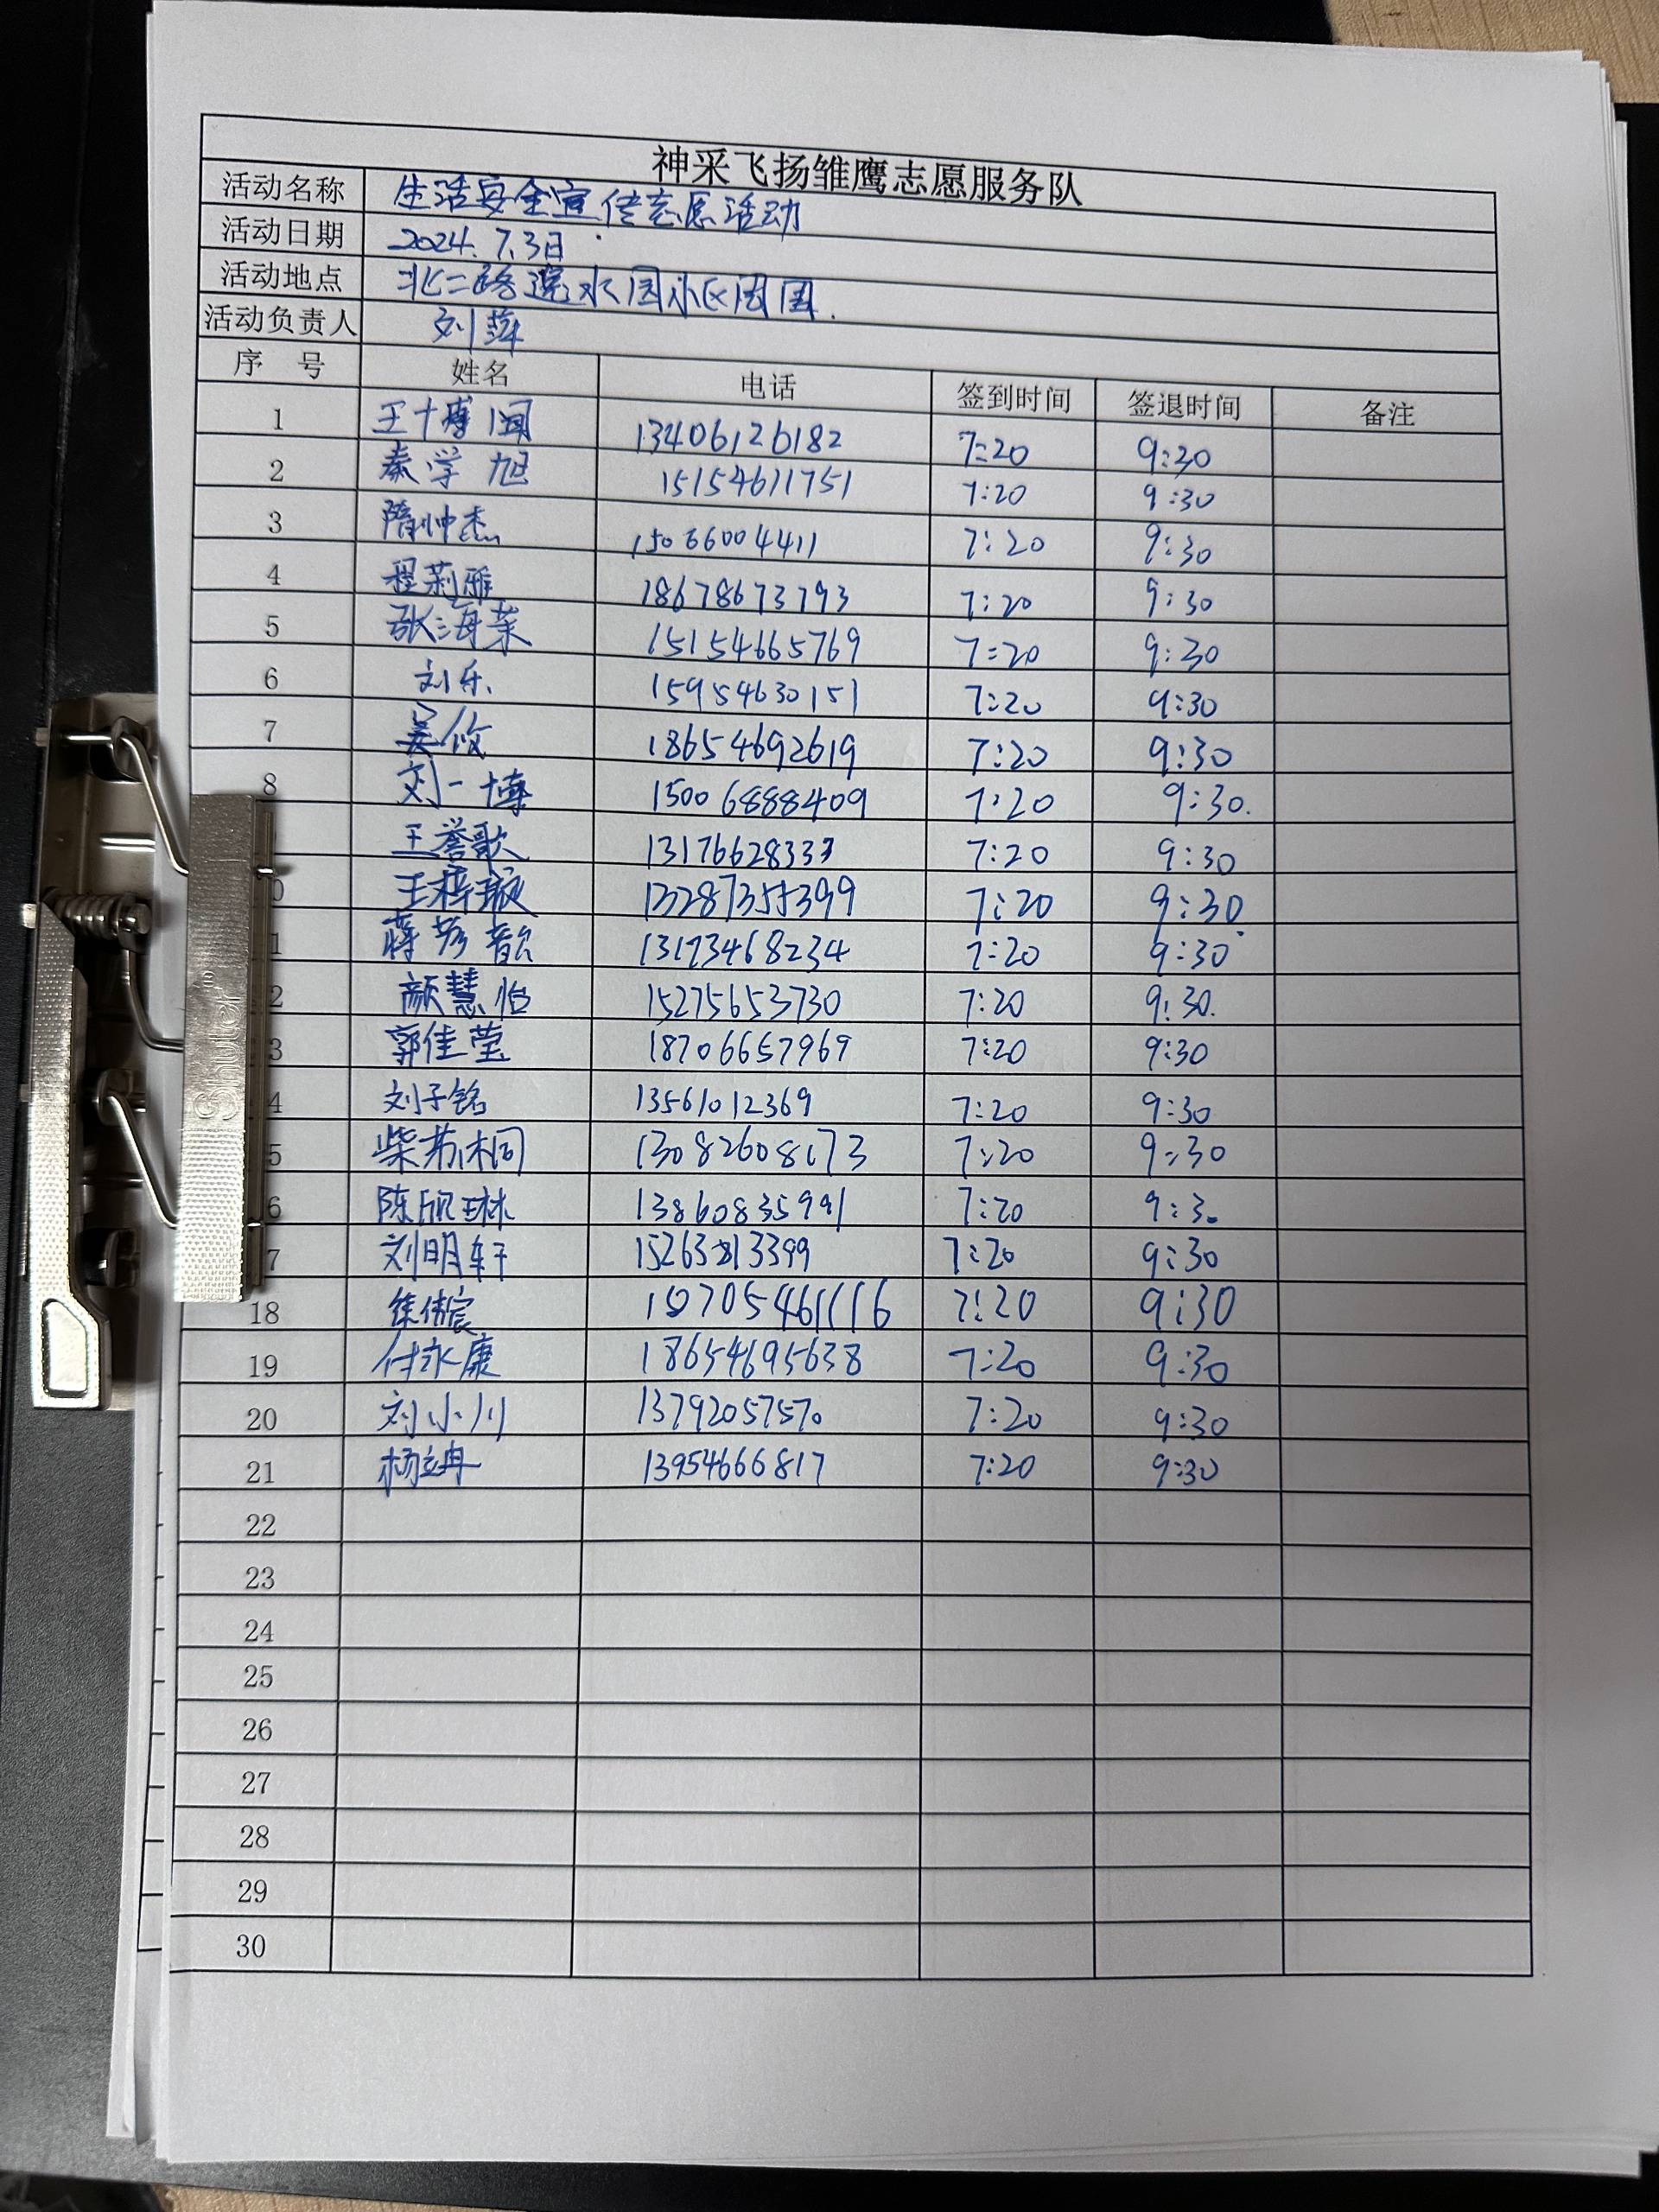 神采飞扬雏鹰志愿服务队
活动名称 生活安全宣传志愿活动
活动日期 2024.7.3日
活动地点 北二路 水园小区周围.
活动负责人 刘萍
序 号 姓名 电话 签到时间 签退时间 备注
1 王博闻 13406126182 7:20 9:30
2 秦学旭 15154611751 7:20 9:30
3 隋帅杰 15066004411 7:20 9:30
4 程莉雅 18678673793 7:20 9:30
5 张海荣 15154665769 7:20 9:30
6 刘乐 15954630151 7:20 9:30
7 18654692619 7:20 9:30
8 刘一博 15006888409 7:20 9:30.
王誉歌 7:20 9:30
0 王梓璇 13287355399 7:20 9:30
1 蒋 13173468234 7:20 9:30
2 颜慧怡 15275653730 7:20 9:30.
3 郭佳莹 18706657969 7:20 9:30
4 刘子铭 13561012369 7:20 9:30
5 柴 桐 13082608173 7:20 9:30
6 陈欣琳 13860835991 7:20 9:30
7 刘明轩 7:20 9:30
18 徐伟宸 7:20 9:30
19 付永康 18654695638 7:20 9:30
20 刘小川 13792057570 7:20 9:30
21 杨 13954666817 7:20 9:30
22
23
24
25
26
27
28
29
30
Shuter